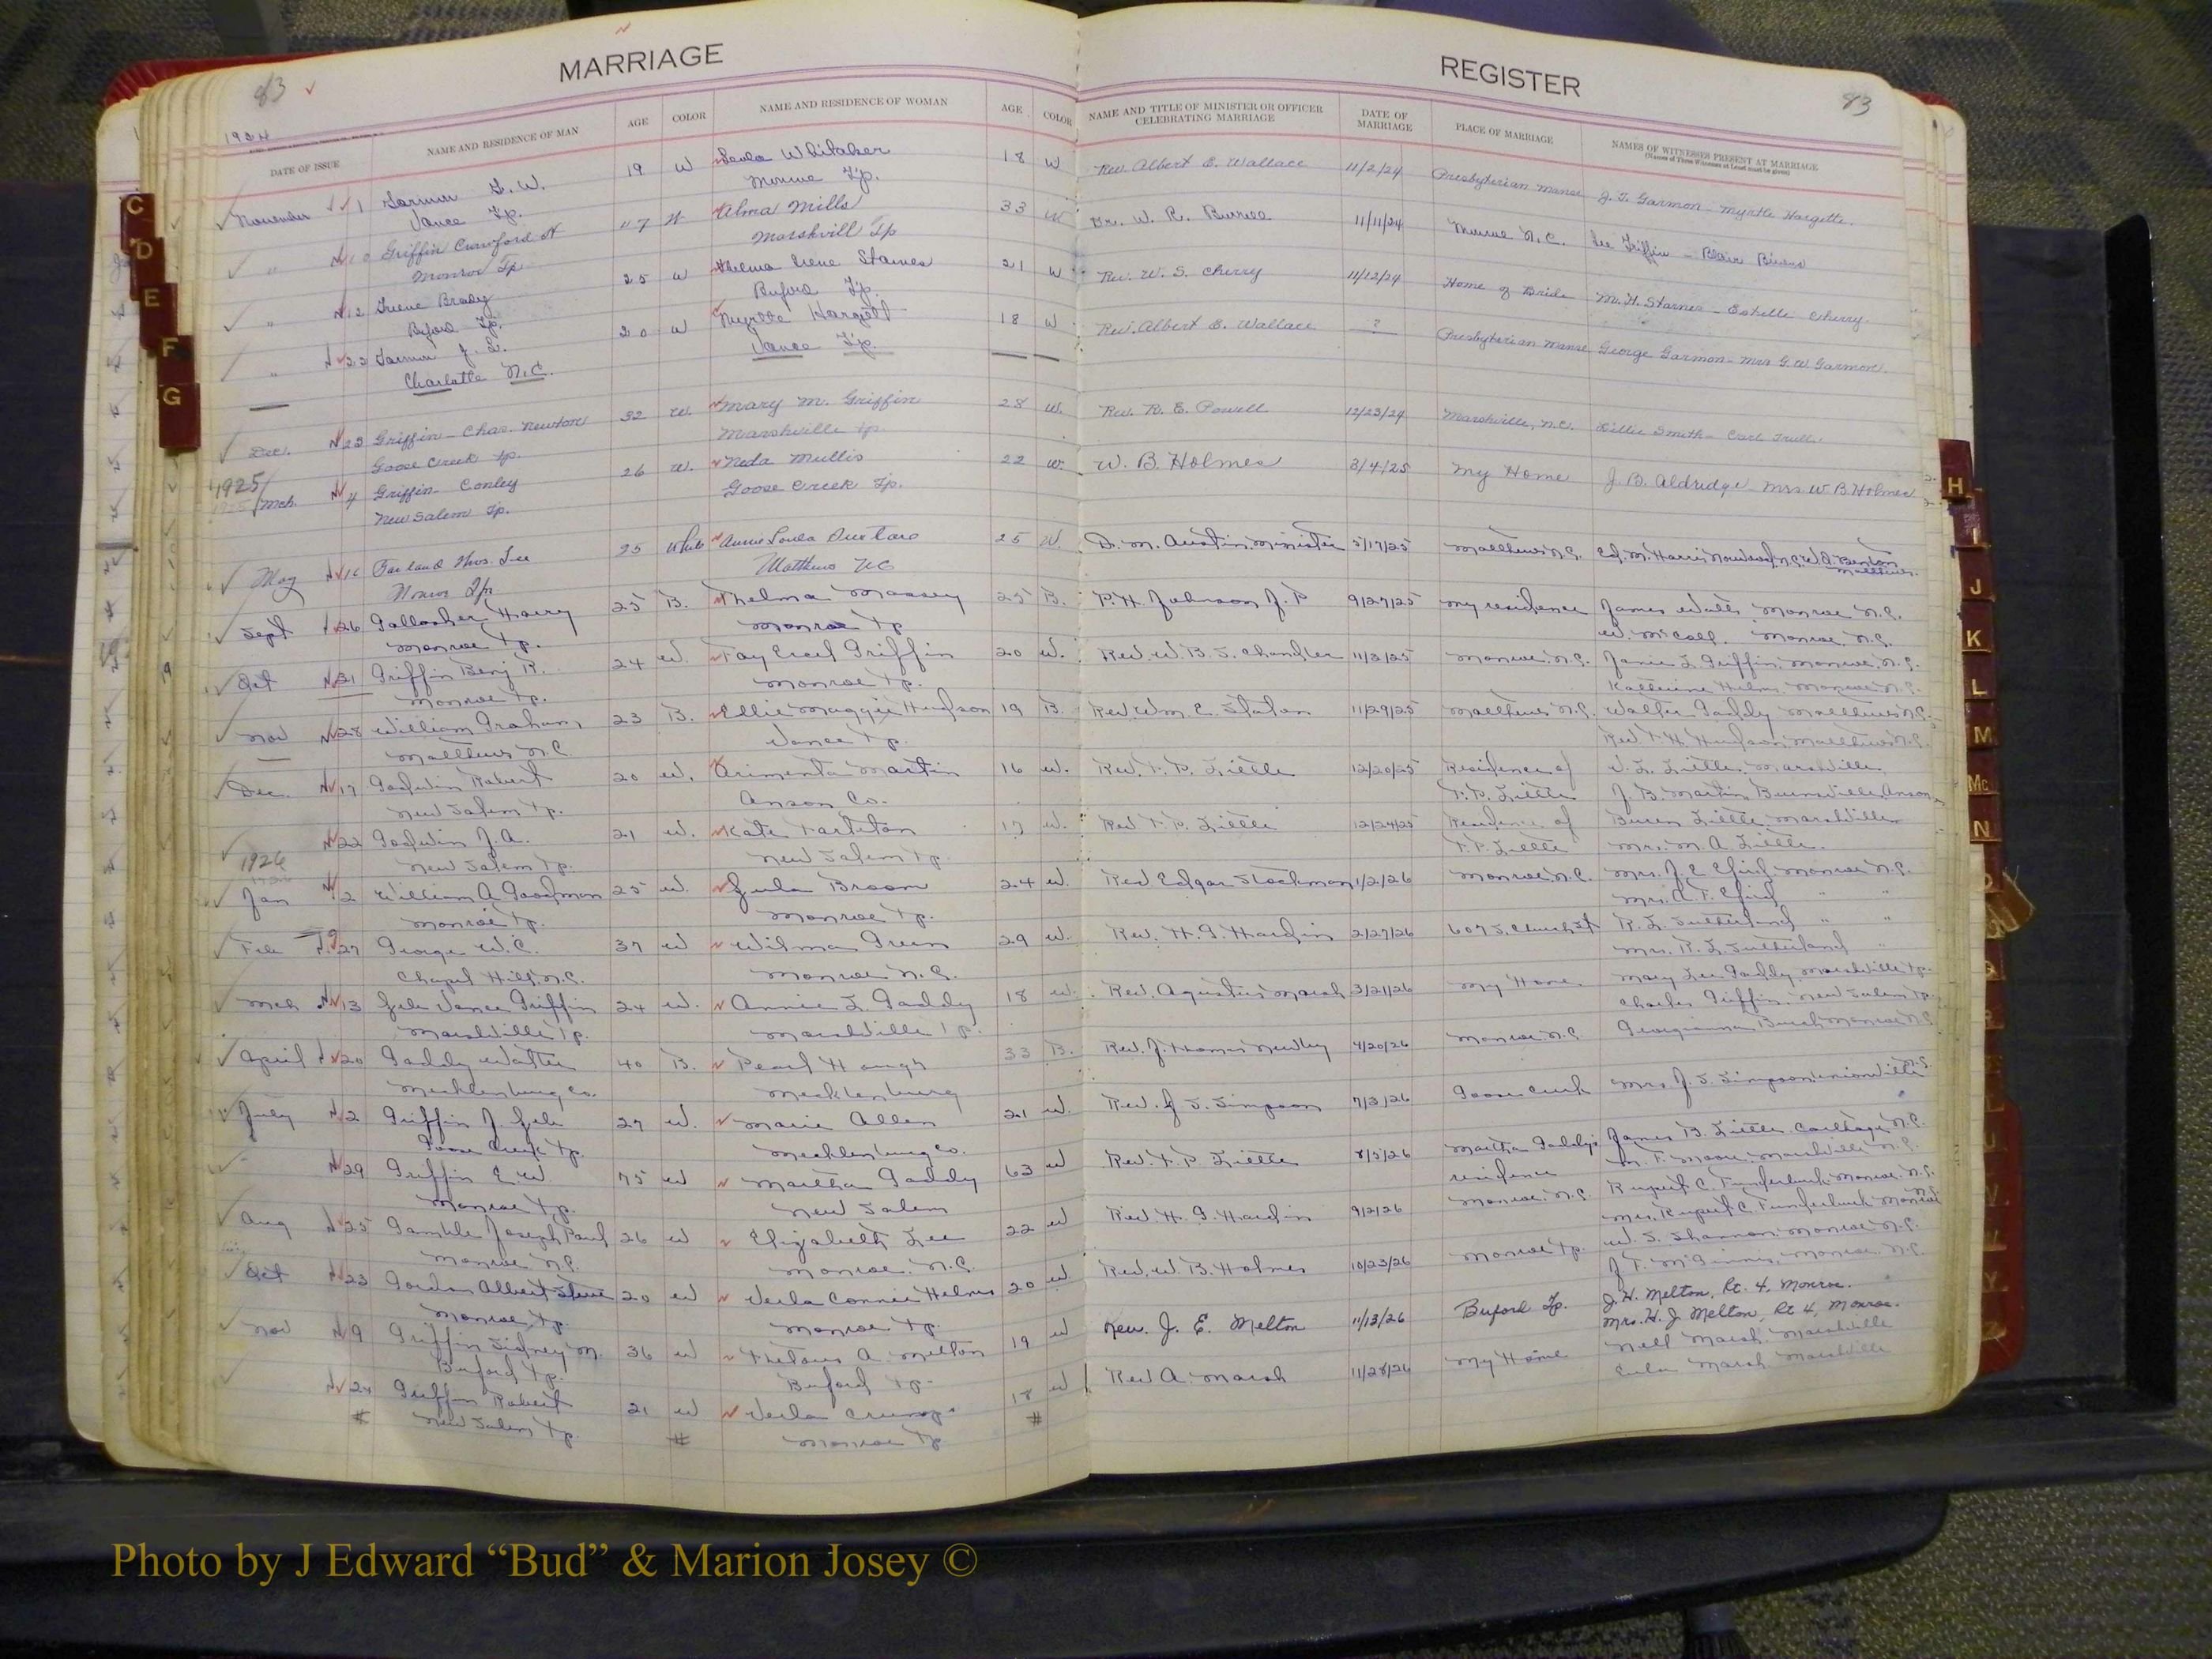 MARRIAGE
REGISTER
83
83
1924
DATE OF ISSUE NAME AND RESIDENCE OF MAN AGE COLOR NAME AND RESIDENCE OF WOMAN AGE COLOR NAME AND TITLE OF MINISTER OR OFFICER CELEBRATING MARRIAGE DATE OF MARRIAGE PLACE OF MARRIAGE NAMES OF WITNESSES PRESENT AT MARRIAGE
(Names of Three Witnesses at Least must be given)
November 1 Garmon G. W. 19 W Whitaker 18 W Rev. Albert E. Wallace 11/2/24 Presbyterian Manse J. T. Garmon - Myrtle Hargette.
Vance Tp. Monroe Tp.
" 10 Griffin Crawford W Alma Mills 33 W Dr. W. R. 11/11/24 Monroe N.C. Lee Griffin - Blair
Monroe Tp Marshvill Tp
" 12 Greene Brady 25 W Thelma Irene Starnes 21 W Rev. W. S. Cherry 11/12/24 Home of Bride M. H. Starnes - Estelle Cherry.
Buford Tp. Buford Tp.
" 22 Garmon J. 20 W Myrtle Hargett 18 W Rev. Albert E. Wallace ? Presbyterian Manse George Garmon - Mrs G. W. Garmon.
Charlotte N.C. Vance Tp.
Dec. 23 Griffin - Chas. Newton 32 W. Mary M. Griffin 28 W. Rev. R. E. Powell 12/23/24 Marshville, N.C. Lillie Smith - Carl
Goose Creek Tp. Marshville Tp.
1925
Mch. 4 Griffin - Conley 26 W. Neda Mullis 22 W. W. B. Holmes 3/4/25 My Home J. B. Aldridge - Mrs W. B. Holmes
New Salem Tp. Goose Creek Tp.
May 16 Garland Thos. Lee 25 White Annie 25 W. D. M. Austin, Minister 5/17/25 Matthews N.C. M. Harris Norwood, N.C. W. A. Benton
Monroe Tp Matthews NC Matthews.
Sept 26 Gallagher Harry 25 B. Thelma Massey 25 B. P. H. Johnson J. P 9/27/25 My residence James Watts, Monroe N.C.
Monroe Tp. Monroe Tp W. McCall. Monroe N.C.
Oct 31 Griffin Benj R. 24 W. Fay Griffin 20 W. Rev. W. B. S. Chandler 11/3/25 Monroe N.C. Janie L. Griffin, Monroe, N.C.
Monroe Tp. Monroe Tp. Katherine Helms, Monroe N.C.
Nov 28 William Graham, 23 B. Ellie Maggie Hudson 19 B. Rev. Wm. C. Staten 11/29/25 Matthews N.C. Walter Gaddy Matthews N.C.
Matthews N.C. Vance Tp. Rev. T. H. Hudson Matthews N.C.
Dec. 17 Godwin Robert 20 W. Arimenta Martin 16 W. Rev. F. P. Little 12/20/25 Residence of Little, Marshville
New Salem Tp. Anson Co. F. P. Little J. B. Martin Burnsville, Anson
22 Godwin J. A. 21 W. Kate Tarleton 17 W. Rev F. P. Little 12/24/25 Residence of Buren Little Marshville
New Salem Tp. New Salem Tp F. P. Little Mrs. M. A. Little.
1926
Jan 2 William A Goodman 25 W. Zula Broom 24 W. Rev Edgar Stockman 1/2/26 Monroe N.C. Mrs. J. E. Efird, Monroe N.C.
Monroe Tp. Monroe Tp. Mrs. A. F. Efird " "
Feb 27 George W. C. 37 W Wilma Green 29 W. Rev. H. G. Hardin 2/27/26 607 S. Church St R. L. Sutherland " "
Chapel Hill N.C. Monroe N.C. Mrs. R. L. Sutherland "
Mch 13 Zeb Vance Griffin 24 W. Annie L. Gaddy 18 W. Rev. Agustus Marsh 3/21/26 My Home Mary Lee Gaddy, Marshville Tp.
Marshville Tp. Marshville Tp. Charles Griffin, New Salem Tp.
April 20 Gaddy Walter 40 B. Pearl Hough 33 B. Rev. J. Thomas Newby 4/20/26 Monroe N.C. Georgianna Monroe N.C
Mecklenburg Co. Mecklenburg
July 2 Griffin J. Zeb 27 W. Marie Allen 21 W. Rev. J. S. Simpson 7/3/26 Goose Creek Mrs. J. S. Simpson Unionville N.C.
Goose Creek Tp. Mecklenburg Co.
29 Griffin E. W. 75 W Martha Gaddy 63 W Rev. F. P. Little 8/5/26 Martha Gaddy's James B. Little, Carthage N.C.
Monroe Tp. New Salem residence M. F. Moore, Marshville N.C.
Aug 25 Gamble Joseph Paul 26 W Elizabeth Lee 22 W Rev. H. G. Hardin 9/2/26 Monroe N.C. Rupert C. Funderburk Monroe N.C.
Monroe N.C. Monroe, N.C. Mrs. Rupert C. Funderburk Monroe N.C.
Oct 23 Gordon Albert Steve 20 W Verla Connie Helms 20 W Rev. W. B. Holmes 10/23/26 Monroe Tp. W. S. Shannon Monroe N.C.
Monroe Tp. Monroe Tp. J. F. McGinnis, Monroe N.C.
Nov 9 Griffin Sidney M. 36 W A. Melton 19 W Rev. J. E. Melton 11/13/26 Buford Tp. J. H. Melton, Rt. 4, Monroe.
Buford Tp. Buford Tp. Mrs. H. J. Melton, Rt 4, Monroe.
24 Griffin Robert 21 W Verla Crump 18 W Rev A. Marsh 11/28/26 My Home Nell Marsh Marshville
New Salem Tp. Monroe Tp Eula Marsh Marshville
C
D
E
F
G
H
I
J
K
L
M
Mc
N
Photo by J Edward “Bud” & Marion Josey ©